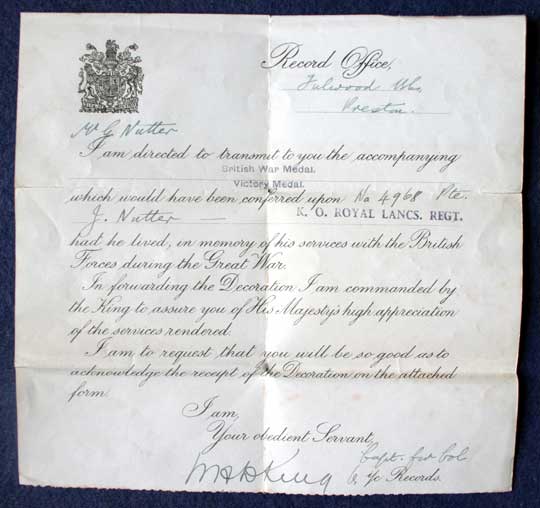 Record Office,
Fulwood
Preston.
Mr G Nutter
I am directed to transmit to you the accompanying
British War Medal.
Victory Medal.
which would have been conferred upon No 4968 Pte.
J. Nutter — K. O. ROYAL LANCS. REGT.
had he lived, in memory of his services with the British
Forces during the Great War.
In forwarding the Decoration I am commanded by
the King to assure you of His Majesty's high appreciation
of the services rendered.
I am to request that you will be so good as to
acknowledge the receipt of the Decoration on the attached
form.
I am,
Your obedient Servant,
Capt. for Col.
King
i/c Records.